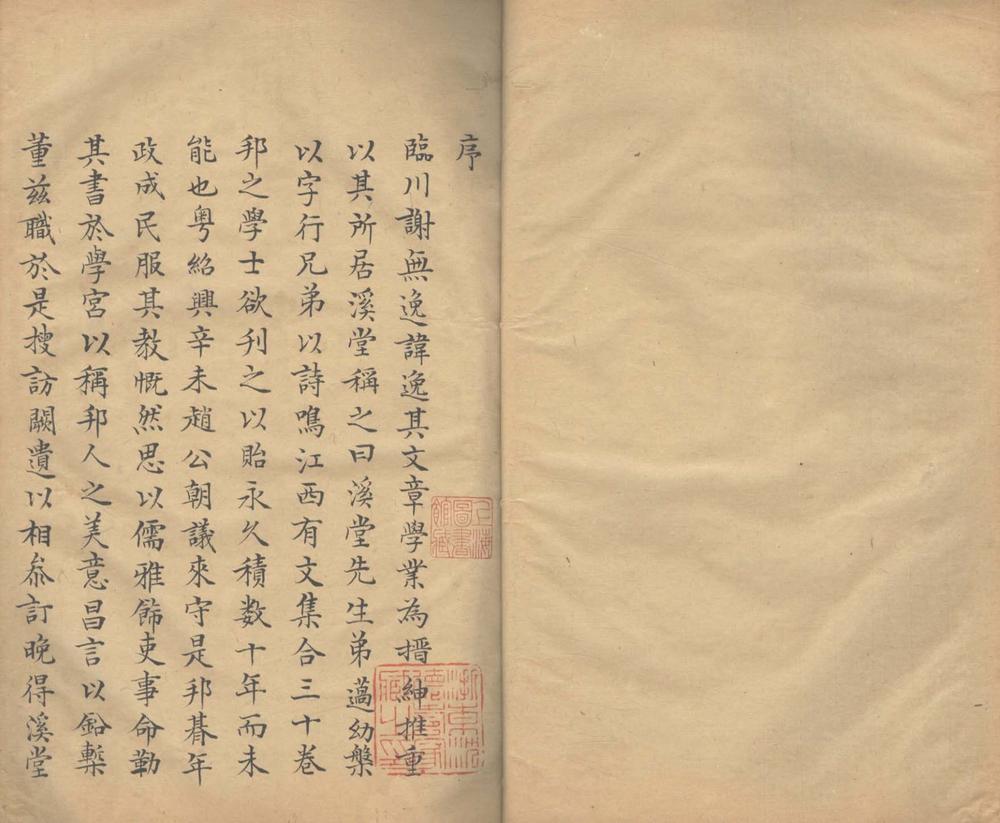 序
臨川謝無逸諱逸其文章學業為搢紳推重
以其所居溪堂稱之曰溪堂先生弟薖幼槃
以字行兄弟以詩鳴江西有文集合三十卷
邦之學士欲刋之以貽永久積数十年而未
能也粤紹興辛未趙公朝議來守是邦朞年
政成民服其教慨然思以儒雅飾吏事命勒
其書於學宮以稱邦人之美意昌言以鉛槧
董兹職於是搜訪闕遺以相叅訂晚得溪堂
上海圖書館藏